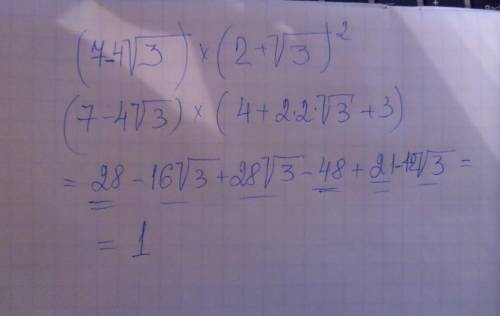 (7-4√3) × (2+√3)²
(7-4√3) × (4+2·2·√3+3)
= 28-16√3+28√3-48+21-12√3 =
= 1